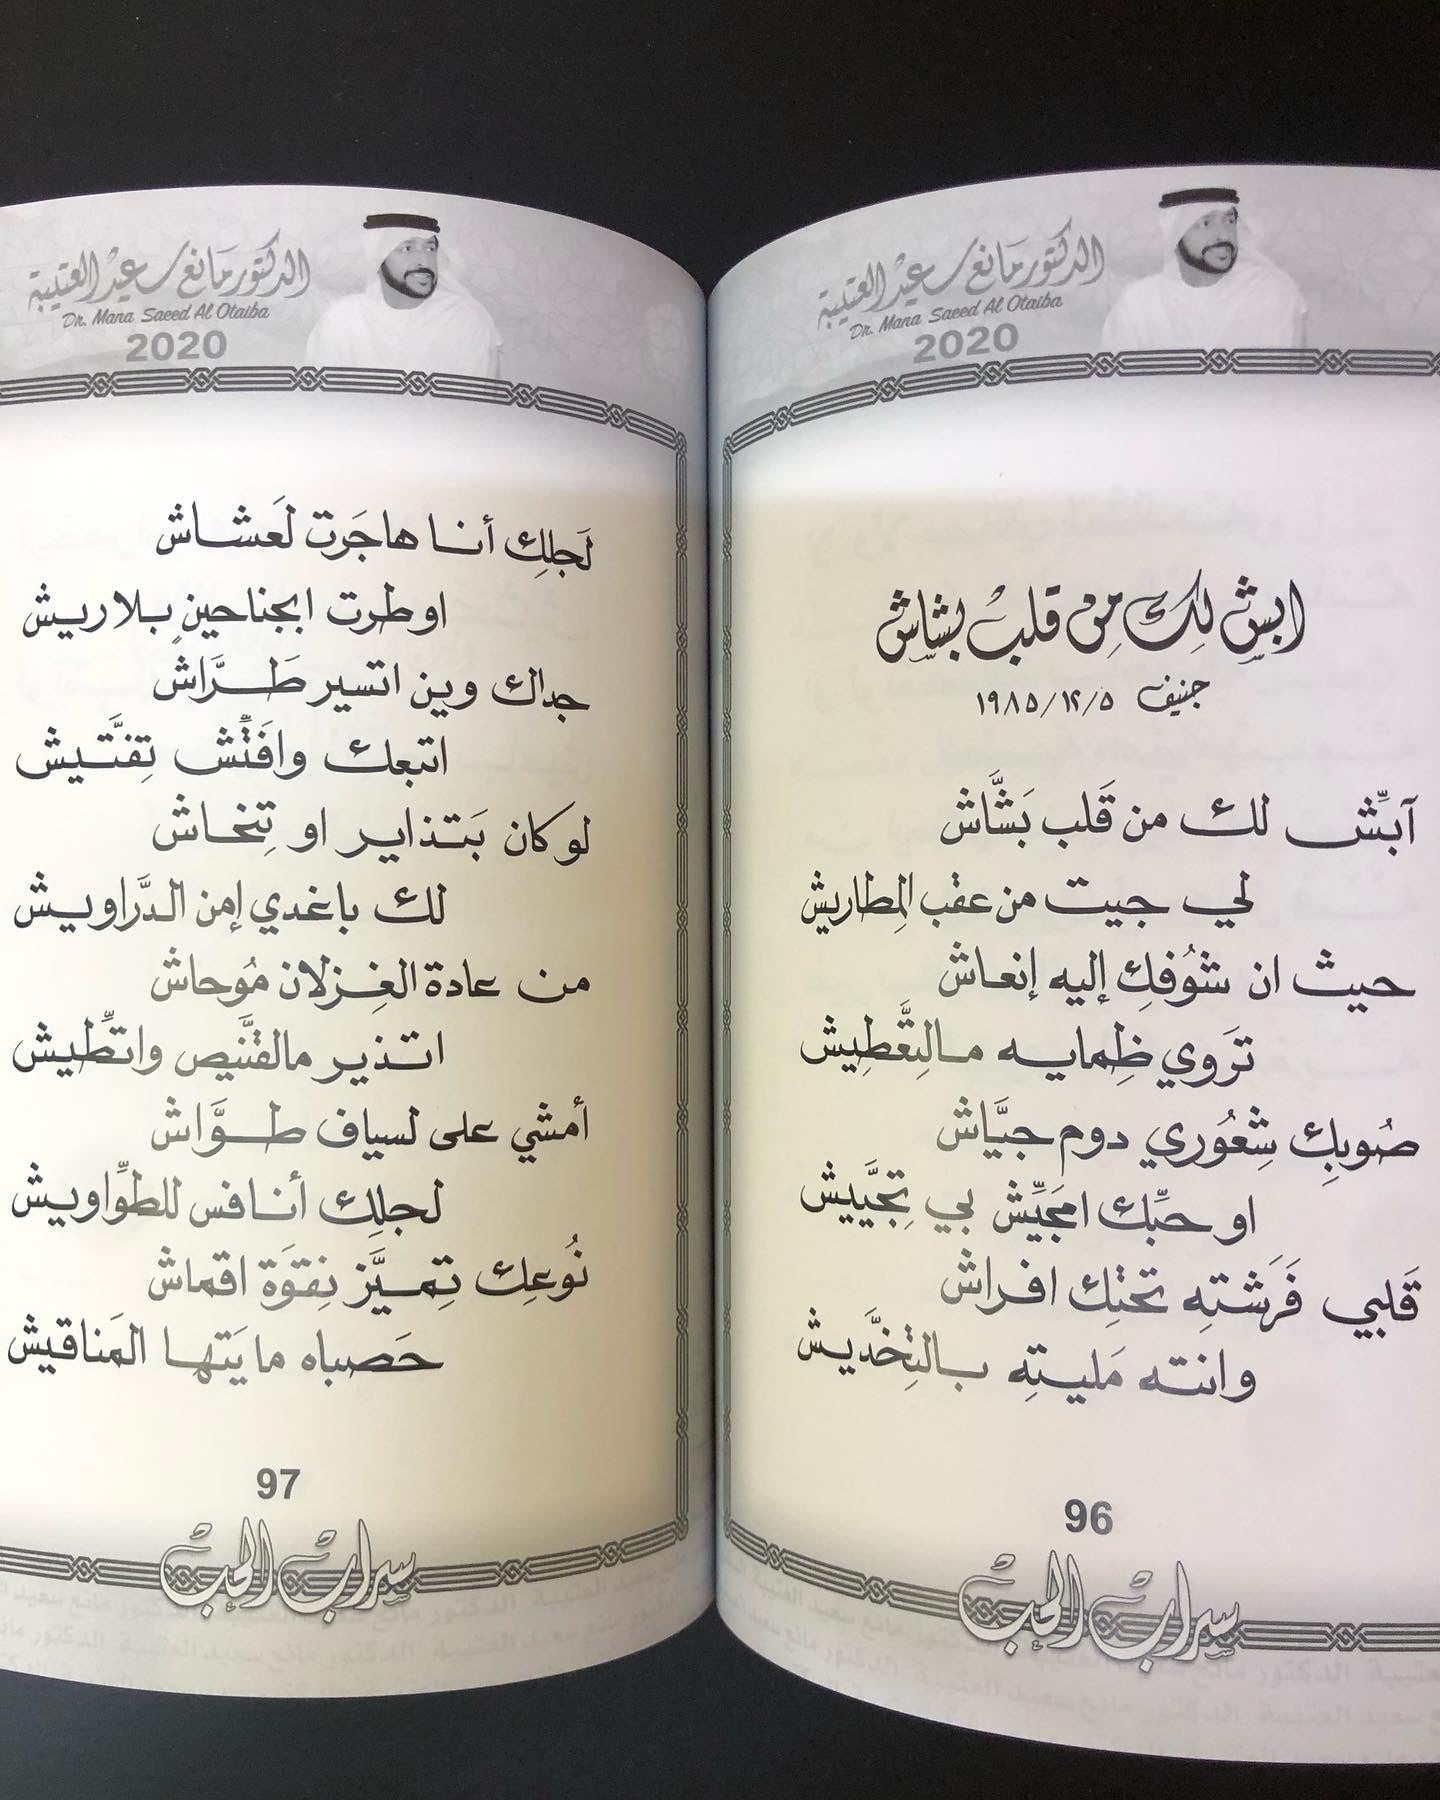 الدكتور مانع سعيد العتيبة
Dr. Mana Saeed Al Otaiba
2020
ابش لك من قلب بشاش
جنيف ١٩٨٥/١٢/٥
آبِّش لك من قَلب بَشَّاش
لي جيت من عقب المِطاريش
حيث ان شوُفكِ إليه إنعاش
تَروي ظِمايه مالتَّعَطِيش
صُوبكِ شِعُوري دوم جيَّاش
او حبِّك امجَيِّش بي تِجَّييش
قَلبي فَرَشتِه تحتِك افراش
وانته مَليتِه بالتِخَدَّيش
96
سراب الحب
الدكتور مانع سعيد العتيبة
Dr. Mana Saeed Al Otaiba
2020
لَجلِك أنا هاجَرت لَعشاش
او طرت ابجناحينٍ بلا ريش
جداك وين اتسير طَرَّاش
اتبعك وافَتِّش تِفتَّيش
لو كان بَتذاير او تِنحاش
لك باغدي إمن الدَّراويش
من عادة الغِزلان مُوحاش
اتذير مالقنَّيص واتطِّيش
أمشي على لسياف طوَّاش
لجلِك أنافس للطوِّاويش
نُوعِك تِميَّز نِقوَة اقماش
حَصباه ما يَتها المَناقيش
97
سراب الحب